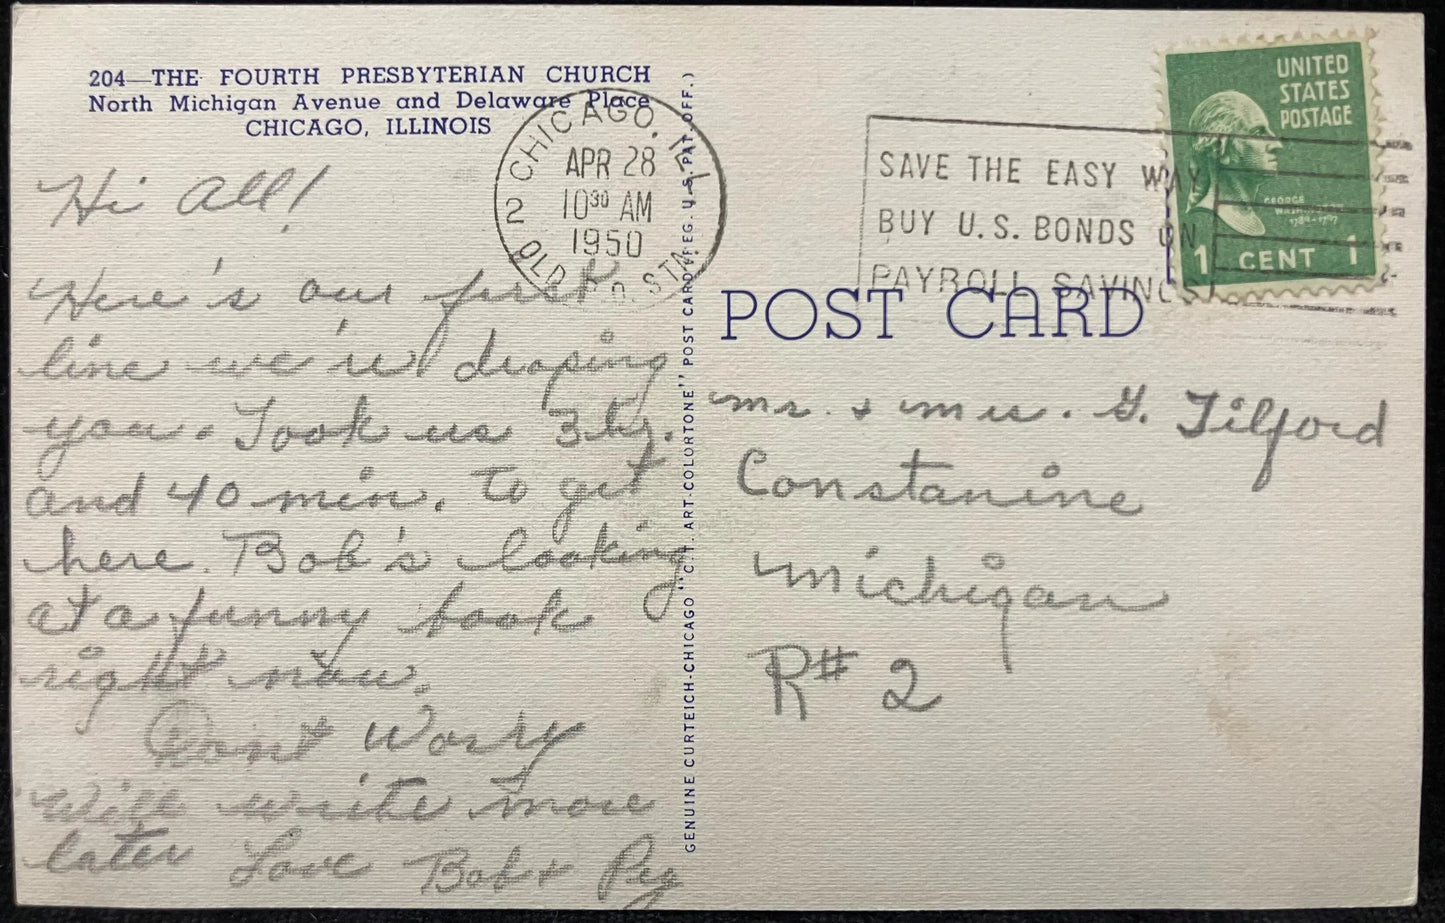 204—THE FOURTH PRESBYTERIAN CHURCH
North Michigan Avenue and Delaware Place
CHICAGO, ILLINOIS
Hi all!
Here's our first
line we're droping
you. Took us 3 hrs.
and 40 min. to get
here. Bob's looking
at a funny book
right now.
Dont Worry
Will write more
later Love Bob + Peg
GENUINE CURTEICH-CHICAGO "C.T. ART-COLORTONE" POST CARD (REG. U.S. PAT. OFF.)
CHICAGO, ILL.
APR 28
10 30 AM
1950
2
OLD P.O. STA.
SAVE THE EASY WAY
BUY U.S. BONDS ON
PAYROLL SAVINGS
UNITED
STATES
POSTAGE
GEORGE
WASHINGTON
1789-1797
1 CENT 1
POST CARD
Mr. + Mrs. G. Tilford
Constanine
Michigan
R# 2